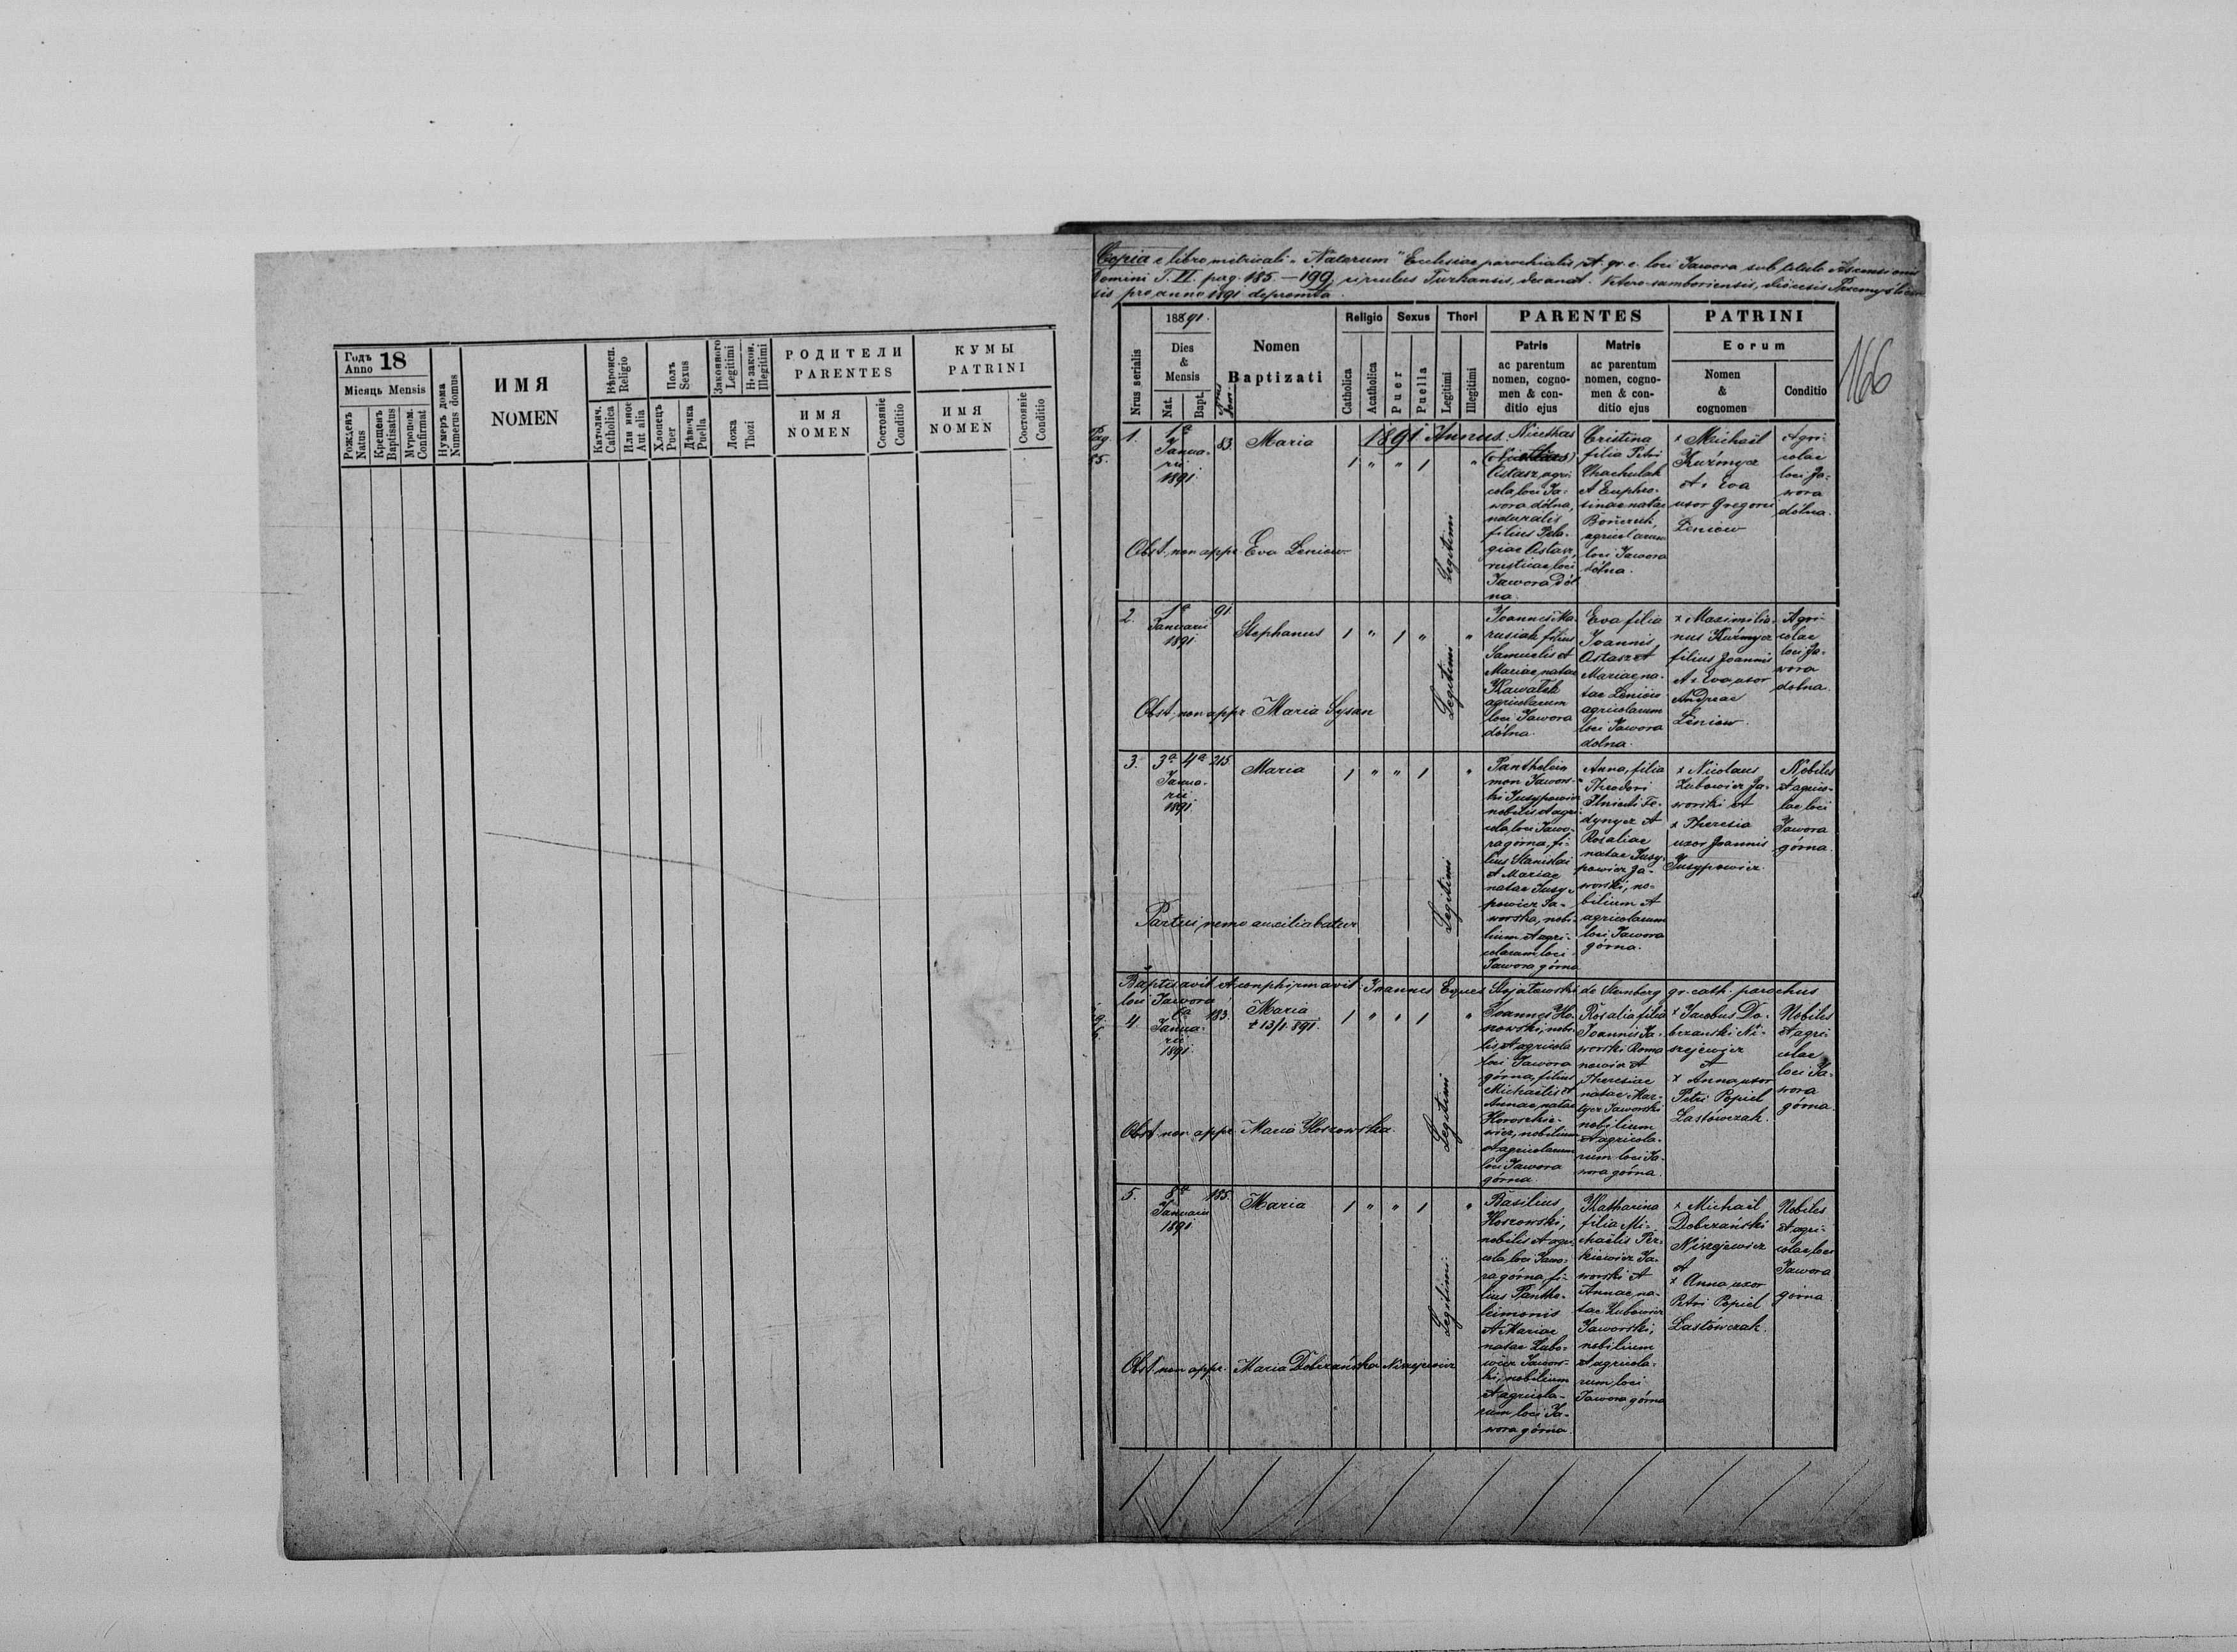 Годъ Anno 18
Місяць Mensis
Рожденъ Natus
Крещенъ Baptisatus
Мѵропом. Confirmat
Нумеръ дома Numerus domus
ИМЯ
NOMEN
Вѣроисп. Religio
Католич. Catholica
Или иное Aut alia
Полъ Sexus
Хлопецъ Puer
Дѣвочка Puella
Законного Legitimi
Н. закон. Illegitimi
Ложа Thozi
РОДИТЕЛИ
PARENTES
ИМЯ
NOMEN
Состояніе Conditio
КУМЫ
PATRINI
ИМЯ
NOMEN
Состояніе Conditio
Copia e libro metricali "Natorum" Ecclesiae parochialis rit. gr. c. loci Jawora sub titulo Ascensionis
Domini T. II. pag. 185 — 199, circulus Turkansis, decanat. Vetero-samboriensis, dioecesis Premysliens
sis pro anno 1891 depromta.
166
Nrus serialis
1891.
Dies
&
Mensis
Nat.
Bapt.
Nomen
Baptizati
Religio
Catholica
Acatholica
Sexus
Puer
Puella
Thori
Legitimi
Illegitimi
PARENTES
Patris
ac parentum
nomen, cogno-
men & con-
ditio ejus
Matris
ac parentum
nomen, cogno-
men & con-
ditio ejus
PATRINI
Eorum
Nomen
&
cognomen
Conditio
Pag.
85.
1891 Annus.
1.
1a
Janua-
rii
1891.
83.
Maria
1 " " 1 "
Legitimi
Nicethas
Astasz, agri-
cola, loci Ja-
wora dólna,
naturalis
filius Pela-
giae Astasz,
rusticae, loci
Jawora Dól
na.
Cristina
filia Petri
Chachulak
et Euphro-
sinae natae
Bończuk,
agricolarum
loci Jawora
dólna.
x Michaël
Kuźmycz
et x Eva
uxor Gregorii
Leniow
Agri-
colae
loci Ja-
wora
dólna.
Obst. non appr. Eva Leniow
2.
1a
Januarii
1891.
91.
Stephanus
1 " 1 " "
Legitimi
Joannes Ma-
rusiak filius
Samuelis et
Mariae, natae
Kawałek
agricolarum
loci Jawora
dólna.
Eva filia
Joannis
Astasz et
Mariae na-
tae Leniow
agricolarum
loci Jawora
dolna.
x Maximilia-
nus Kuźmycz
filius Joannis
et x Eva, uxor
Andreae
Leniow.
Agri-
colae
loci Ja-
wora
dolna.
Obst. non appr. Maria Sysan
3.
3a 4a
Janua-
rii
1891
215.
Maria
1 " " 1 "
Legitimi
Panthelei-
mon Jawors-
ki Jusypowicz
nobilis et agri-
cola, loci Jawo-
ra górna, fi-
lius Stanislai
et Mariae
natae Jusy-
powicz Ja-
worska, nobi-
lium et agri-
colarum loci
Jawora górna
Anna, filia
Theodori
Ilnicki Fe-
dynycz et
Rosaliae
natae Jusy-
powicz Ja-
worski, no-
bilium et
agricolarum
loci Jawora
górna.
x Nicolaus
Zubowicz Ja-
worski et
x Theresia
uxor Joannis
Jusypowicz.
Nobiles
et agrico-
lae loci
Jawora
górna.
Partui nemo auxiliabatur
Baptisavit et confirmavit: Joannes Eques de Sternberg gr. cath. parochus
loci Jawora
4.
6a
Janua-
rii
1891
183.
Maria
+ 13/1 891.
1 " " 1 "
Legitimi
Joannes Ho-
szowski, nobi-
lis et agricola
loci Jawora
górna, filius
Michaëlis et
Annae, natae
nobilium
et agricolarum
loci Jawora
górna.
Rosalia filia
Joannis Ja-
worski Roma
nowicz et
Theresiae
natae Mar-
tycz Jaworski
nobilium
et agricola-
rum loci Ja-
wora górna.
x Jacobus Do-
brzanski Ni-
szejewicz
et
x Anna, uxor
Petri Popiel
Lastówczak.
Nobiles
et agri-
colae
loci Ja-
wora
górna.
Obst. non appr. Maria Hoszowska.
5.
8va
Januarii
1891
185.
Maria
1 " " 1 "
Legitimi
Basilius
Hoszowski,
nobilis et agri-
cola loci Jawo-
ra górna, fi-
lius Panthe-
leimonis
et Mariae
natae Zubo-
wicz Jawors-
ki, nobilium
et agricola-
rum, loci Ja-
wora górna.
Katharina
filia Mi-
chaëlis Per-
kiewicz Ja-
worski et
Annae, na-
tae Zubowicz
Jaworski,
nobilium
et agricola-
rum, loci
Jawora górna
x Michaël
Dobrzański
Niszejewicz
et
x Anna, uxor
Petri Popiel
Lastówczak.
Nobiles
et agri-
colae, loci
Jawora
górna.
Obst. non appr. Maria Dobrzańska Niszejewicz